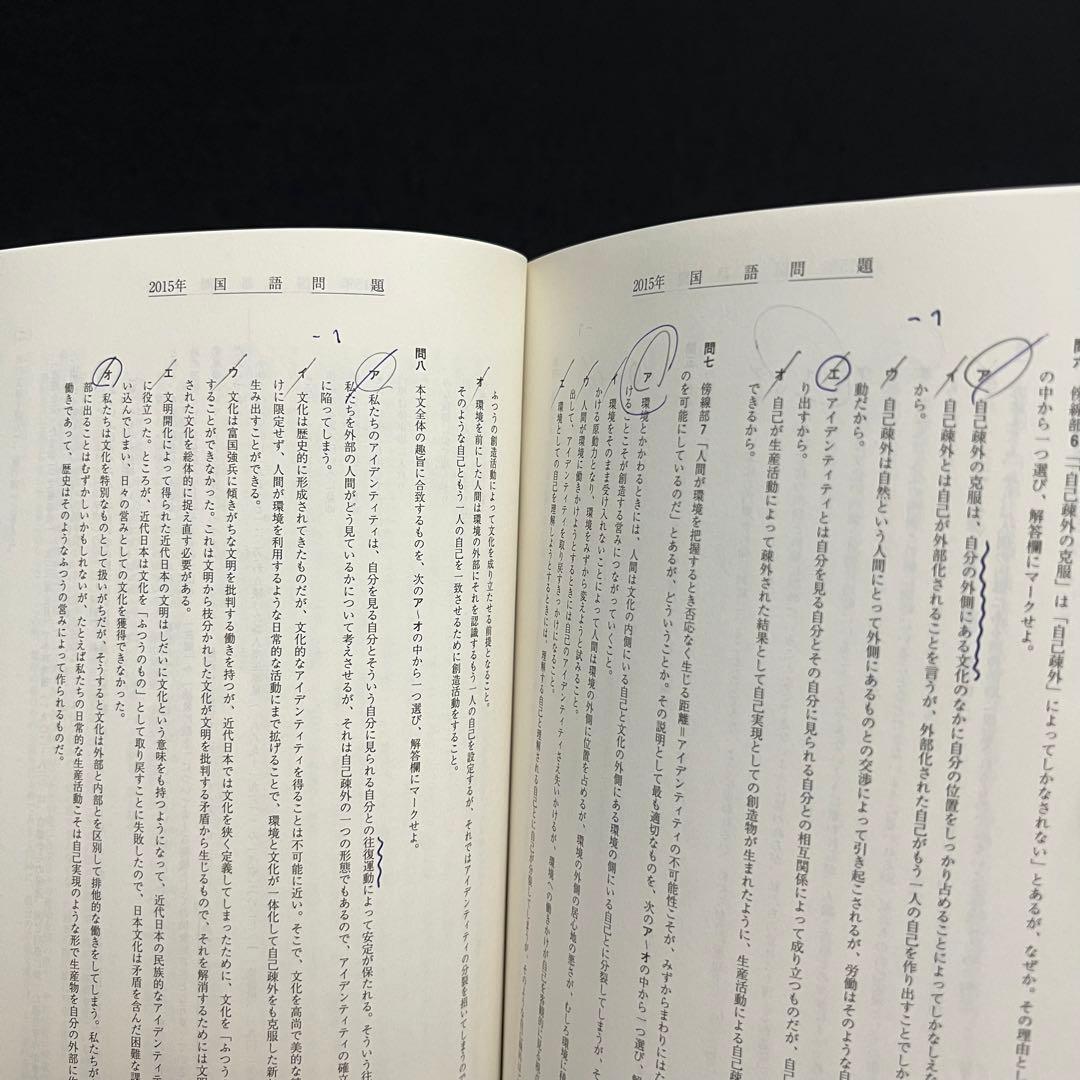 2015年 国語問題
-1
問六 傍線部6「「自己疎外の克服」は「自己疎外」によってしかなされない」とあるが、なぜか。その理由とし
の中から一つ選び、解答欄にマークせよ。
ア 自己疎外の克服は、自分の外側にある文化のなかに自分の位置をしっかり占めることによってしかなしえな
イ 自己疎外とは自己が外部化されることを言うが、外部化された自己がもう一人の自己を作り出すことでしか
から。
ウ 自己疎外は自然という人間にとって外側にあるものとの交渉によって引き起こされるが、労働はそのような自
動だから。
エ アイデンティティとは自分を見る自分とその自分に見られる自分との相互関係によって成り立つものだが、自己
り出すから。
オ 自己が生産活動によって疎外された結果として自己実現としての創造物が生まれたように、生産活動による自己
できるから。
問七 傍線部7「人間が環境を把握するとき否応なく生じる距離=アイデンティティの不可能性こそが、みずからまわりにはた
のを可能にしているのだ」とあるが、どういうことか。その説明として最も適切なものを、次のア〜オの中から一つ選び、解
ア 環境とかかわるときには、人間は文化の内側にいる自己と文化の外側にある環境の側にいる自己とに分裂してしまうが、そ
けることこそが創造する営みにつながっていくこと。
イ 環境をそのまま受け入れないことによって人間は環境の外側に位置を占めるが、環境の外側の居心地の悪さが、むしろ環境に
かける原動力となり、環境をみずから変えようと試みること。
ウ 人間が環境に働きかけようとするときには自己のアイデンティティさえ失いかけるが、環境への働きかけが自己を客観的に見る視点
出して、アイデンティティを取り戻すきっかけになること。
エ 環境としての自己を理解しようとするときには、理解する自己と理解される自己とに自己が分裂してしまうが、そのような自己
2015年 国語問題
-1
ふつうの創造活動によって文化を成り立たせる前提となること。
オ 環境を前にした人間は環境の外部にそれを認識するもう一人の自己を設定するが、それではアイデンティティの分裂を招いてしまうので
そのような自己ともう一人の自己を一致させるために創造活動をすること。
問八 本文全体の趣旨に合致するものを、次のア〜オの中から一つ選び、解答欄にマークせよ。
ア 私たちのアイデンティティは、自分を見る自分とそういう自分に見られる自分との往復運動によって安定が保たれる。そういう往
私たちを外部の人間がどう見ているかについて考えさせるが、それは自己疎外の一つの形態でもあるので、アイデンティティの確立
に陥ってしまう。
イ 文化は歴史的に形成されてきたものだが、文化的なアイデンティティを得ることは不可能に近い。そこで、文化を高尚で美的な
けに限定せず、人間が環境を利用するような日常的な活動にまで拡げることで、環境と文化が一体化して自己疎外をも克服した新し
生み出すことができる。
ウ 文化は富国強兵に傾きがちな文明を批判する働きを持つが、近代日本では文化を狭く定義してしまったために、文化を「ふつう
することができなかった。これは文明から枝分かれした文化が文明を批判する矛盾から生じるもので、それを解消するためには文明
された文化を総体的に捉え直す必要がある。
エ 文明開化によって得られた近代日本の文明はしだいに文化という意味をも持つようになって、近代日本の民族的なアイデンティテ
に役立った。ところが、近代日本は文化を「ふつうのもの」として取り戻すことに失敗したので、日本文化は矛盾を含んだ困難な課
い込んでしまい、日々の営みとしての文化を獲得できなかった。
オ 私たちは文化を特別なものとして扱いがちだが、そうすると文化は外部と内部とを区別して排他的な働きをしてしまう。私たちが
部に出ることはむずかしいかもしれないが、たとえば私たちの日常的な生産活動こそは自己実現のような形で生産物を自分の外部に作
働きであって、歴史はそのようなふつうの営みによって作られるものだ。